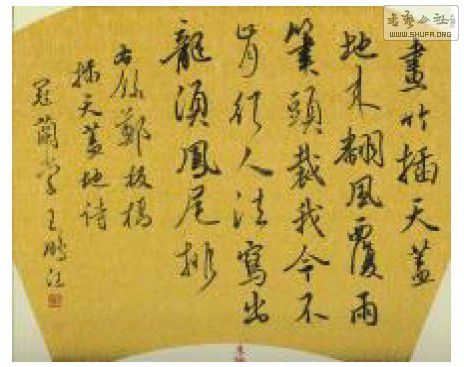 畫竹插天蓋
地來翻風覆雨
筆頭裁我今不
肯從人法寫出
龍須鳳尾排
右録鄭板橋
插天蓋地诗
蘭堂王鵬江
书艺公社
WWW.SHUFA.ORG